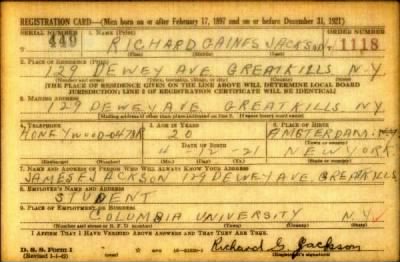 REGISTRATION CARD—(Men born on or after February 17, 1897 and on or before December 31, 1921)
SERIAL NUMBER 1. NAME (Print) ORDER NUMBER
449 RICHARD GAINES JACKSON 1118
(First) (Middle) (Last)
2. PLACE OF RESIDENCE (Print)
129 DEWEY AVE GREAT KILLS N.Y.
(Number and street) (Town, township, village, or city) (County) (State)
[THE PLACE OF RESIDENCE GIVEN ON THE LINE ABOVE WILL DETERMINE LOCAL BOARD
JURISDICTION; LINE 2 OF REGISTRATION CERTIFICATE WILL BE IDENTICAL]
3. MAILING ADDRESS
129 DEWEY AVE GREAT KILLS N.Y.
[Mailing address if other than place indicated on line 2. If same insert word same]
4. TELEPHONE 5. AGE IN YEARS 6. PLACE OF BIRTH
HONEYWOOD-0478R 20 AMSTERDAM
(Town or county)
4 13 21 NEW YORK
(Exchange) (Number) (Mo.) (Day) (Yr.) (State or country)
7. NAME AND ADDRESS OF PERSON WHO WILL ALWAYS KNOW YOUR ADDRESS
JAMES JACKSON 129 DEWEY AVE. GREAT KILLS
8. EMPLOYER'S NAME AND ADDRESS
STUDENT
9. PLACE OF EMPLOYMENT OR BUSINESS
COLUMBIA UNIVERSITY N.Y.
(Number and street or R. F. D. number) (Town) (County) (State)
I AFFIRM THAT I HAVE VERIFIED ABOVE ANSWERS AND THAT THEY ARE TRUE.
D. S. S. Form 1
(Revised 1-1-42) (over) Richard G. Jackson
(Registrant's signature)